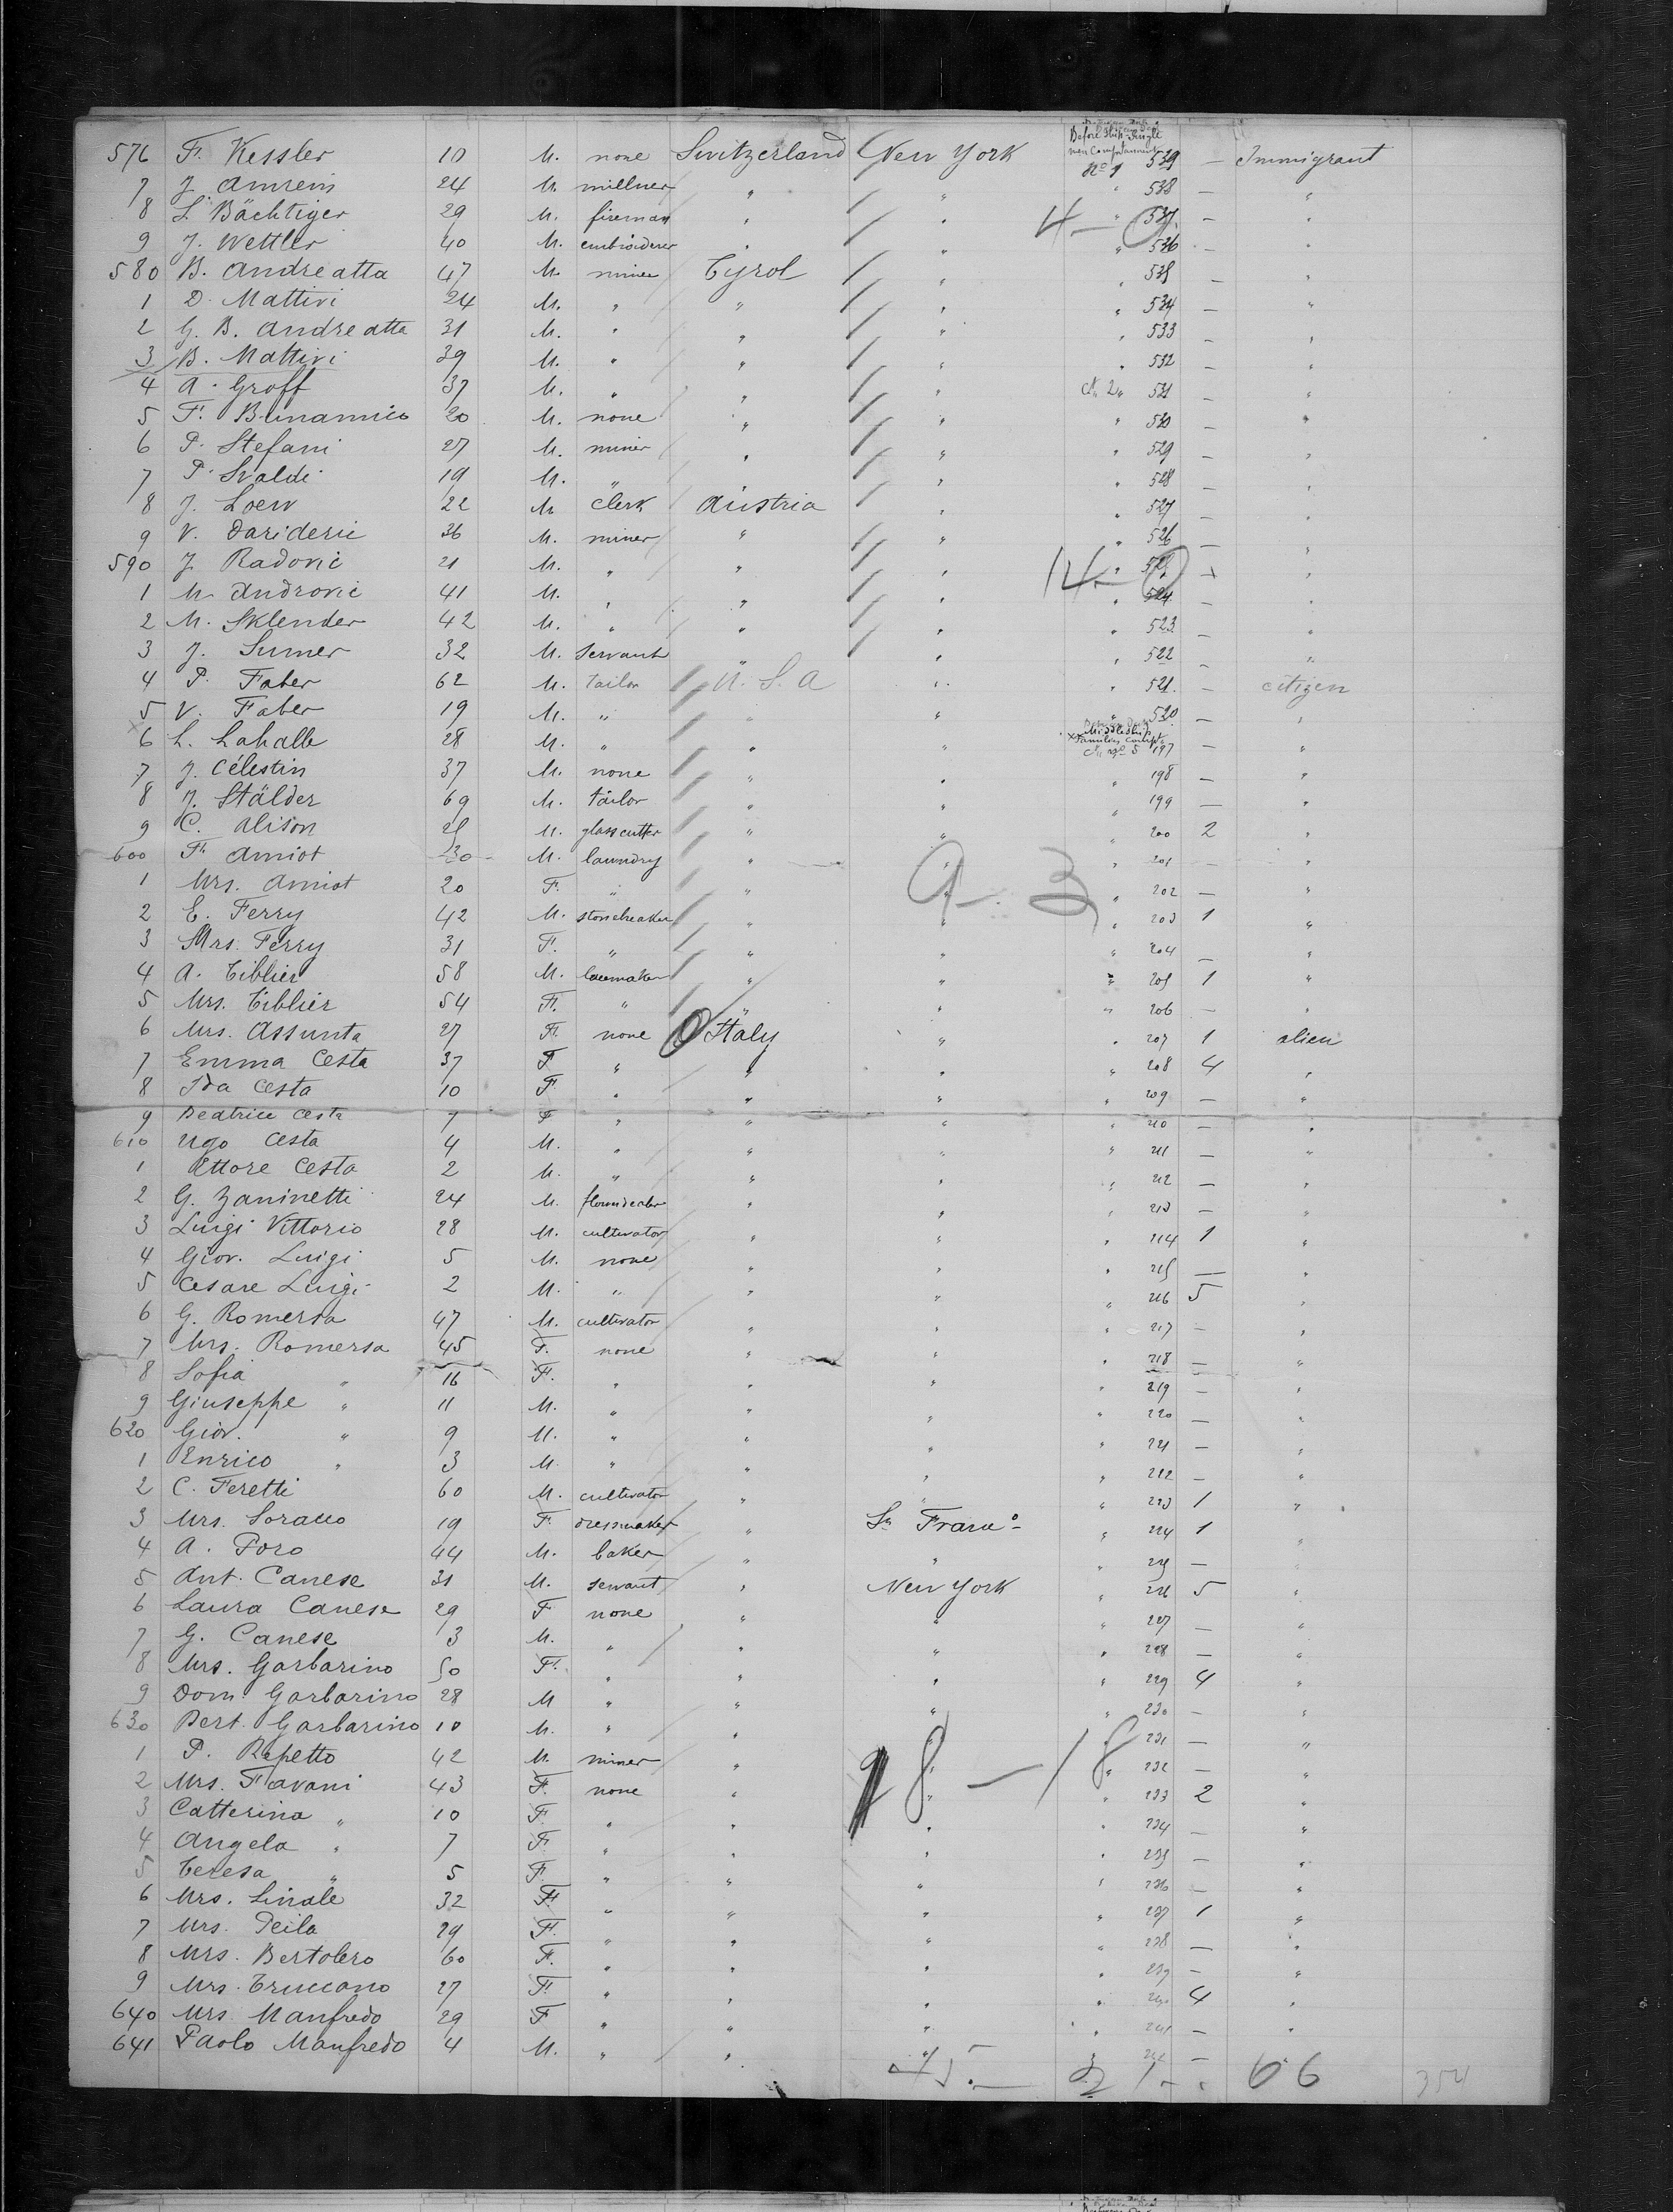 Before Ship Single
men Compartment
576 F. Kessler 10 M. none Switzerland New York No 1 539 — Immigrant
7 J. Amrein 24 M. millner " " " 538 — "
8 L. Bächtiger 29 M. fireman " " " 537 — "
9 J. Wettler 40 M. embroiderer " " " 536 — "
580 B. Andreatta 47 M. miner Tyrol " " 535 — "
1 D. Mattivi 24 M. " " " " 534 — "
2 G. B. Andreatta 31 M. " " " " 533 — "
3 B. Mattivi 39 M. " " " " 532 — "
4 A. Groff 37 M. " " " No 2 " 531 — "
5 F. Bunamico 20 M. none " " " 530 — "
6 P. Stefani 27 M. miner " " " 529 — "
7 P. Svaldi 19 M. " " " " 528 — "
8 J. Loew 22 M. clerk Austria " " 527 — "
9 V. Darideric 36 M. miner " " " 526 — "
590 J. Radovic 21 M. " " " " 525 — "
1 M. Androvic 41 M. " " " " 524 — "
2 M. Sklender 42 M. " " " " 523 — "
3 J. Sumer 32 M. servant " " " 522 — "
4 P. Faber 62 M. tailor U. S. A " " 521. — citizen
5 V. Faber 19 M. " " " " 520 — "
Middleship
Families Compt.
6 L. Lahalle 28 M. " " " No 5 197 — "
7 J. Célestin 37 M. none " " " 198 — "
8 J. Stälder 69 M. tailor " " " 199 — "
9 C. Alison 25 M. glasscutter " " " 200 2 "
600 F. Amiot 30 M. laundry " " " 201 — "
1 Mrs. Amiot 20 F. " " " " 202 — "
2 E. Ferry 42 M. stonebreaker " " " 203 1 "
3 Mrs. Ferry 31 F. " " " " 204 — "
4 A. Tiblier 58 M. lacemaker " " " 205 1 "
5 Mrs. Tiblier 54 F. " " " " 206 — "
6 Mrs. Assunta 27 F. none Italy " " 207 1 alien
7 Emma Cesta 37 F " " " " 208 4 "
8 Ida Cesta 10 F " " " " 209 — "
9 Beatrice Cesta 7 F " " " " 210 — "
610 Ugo Cesta 4 M. " " " " 211 — "
1 Ettore Cesta 2 M. " " " " 212 — "
2 G. Zaninetti 24 M. " " " 213 — "
3 Luigi Vittorio 28 M. cultivator " " " 214 1 "
4 Giov. Luigi 5 M. none " " " 215 — "
5 Cesare Luigi 2 M. " " " " 216 5 "
6 G. Romersa 47 M. cultivator " " " 217 — "
7 Mrs. Romersa 45 F. none " " " 218 — "
8 Sofia " 16 F. " " " " 219 — "
9 Giuseppe " 11 M. " " " " 220 — "
620 Giov. " 9 M. " " " " 221 — "
1 Enrico " 3 M " " " " 222 — "
2 C. Feretti 60 M. cultivator " " " 223 1 "
3 Mrs. Soracco 19 F. dressmaker " Sn Franco " 224 1 "
4 A. Poro 44 M. baker " " " 225 — "
5 Ant. Canese 31 M. servant " New York " 226 5 "
6 Laura Canese 29 F none " " " 227 — "
7 G. Canese 3 M. " " " " 228 — "
8 Mrs. Garbarino 50 F. " " " " 229 4 "
9 Dom. Garbarino 28 M " " " " 230 — "
630 Bert. Garbarino 10 M. " " " " 231 — "
1 P. Repetto 42 M. miner " " " 232 — "
2 Mrs. Favani 43 F. none " " " 233 2 "
3 Catterina " 10 F " " " " 234 — "
4 Angela " 7 F " " " " 235 — "
5 Teresa " 5 F " " " " 236 — "
6 Mrs. Linale 32 F. " " " " 237 1 "
7 Mrs. Peila 29 F. " " " " 238 — "
8 Mrs. Bertolero 60 F. " " " " 239 — "
9 Mrs. Truccano 27 F " " " " 240 4 "
640 Mrs Manfredo 29 F " " " " 241 — "
641 Paolo Manfredo 4 M. " " " " 242 — "
4 — 0
14 — 0
9 — 3
18 — 18
45 — 21 — 66 354